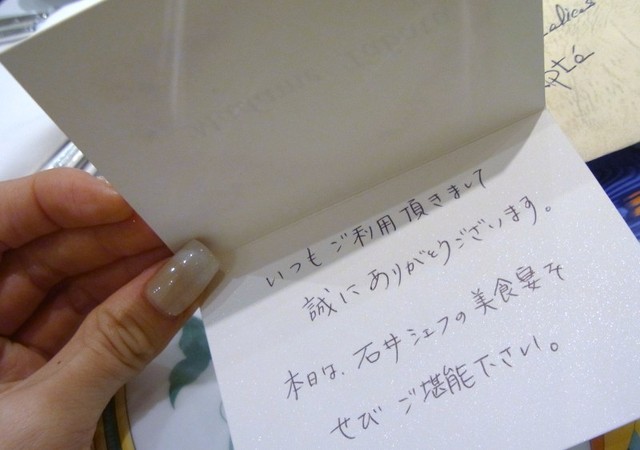 いつもご利用頂きまして
誠にありがとうございます。
本日は、石井シェフの美食宴を
ぜひご堪能下さい。